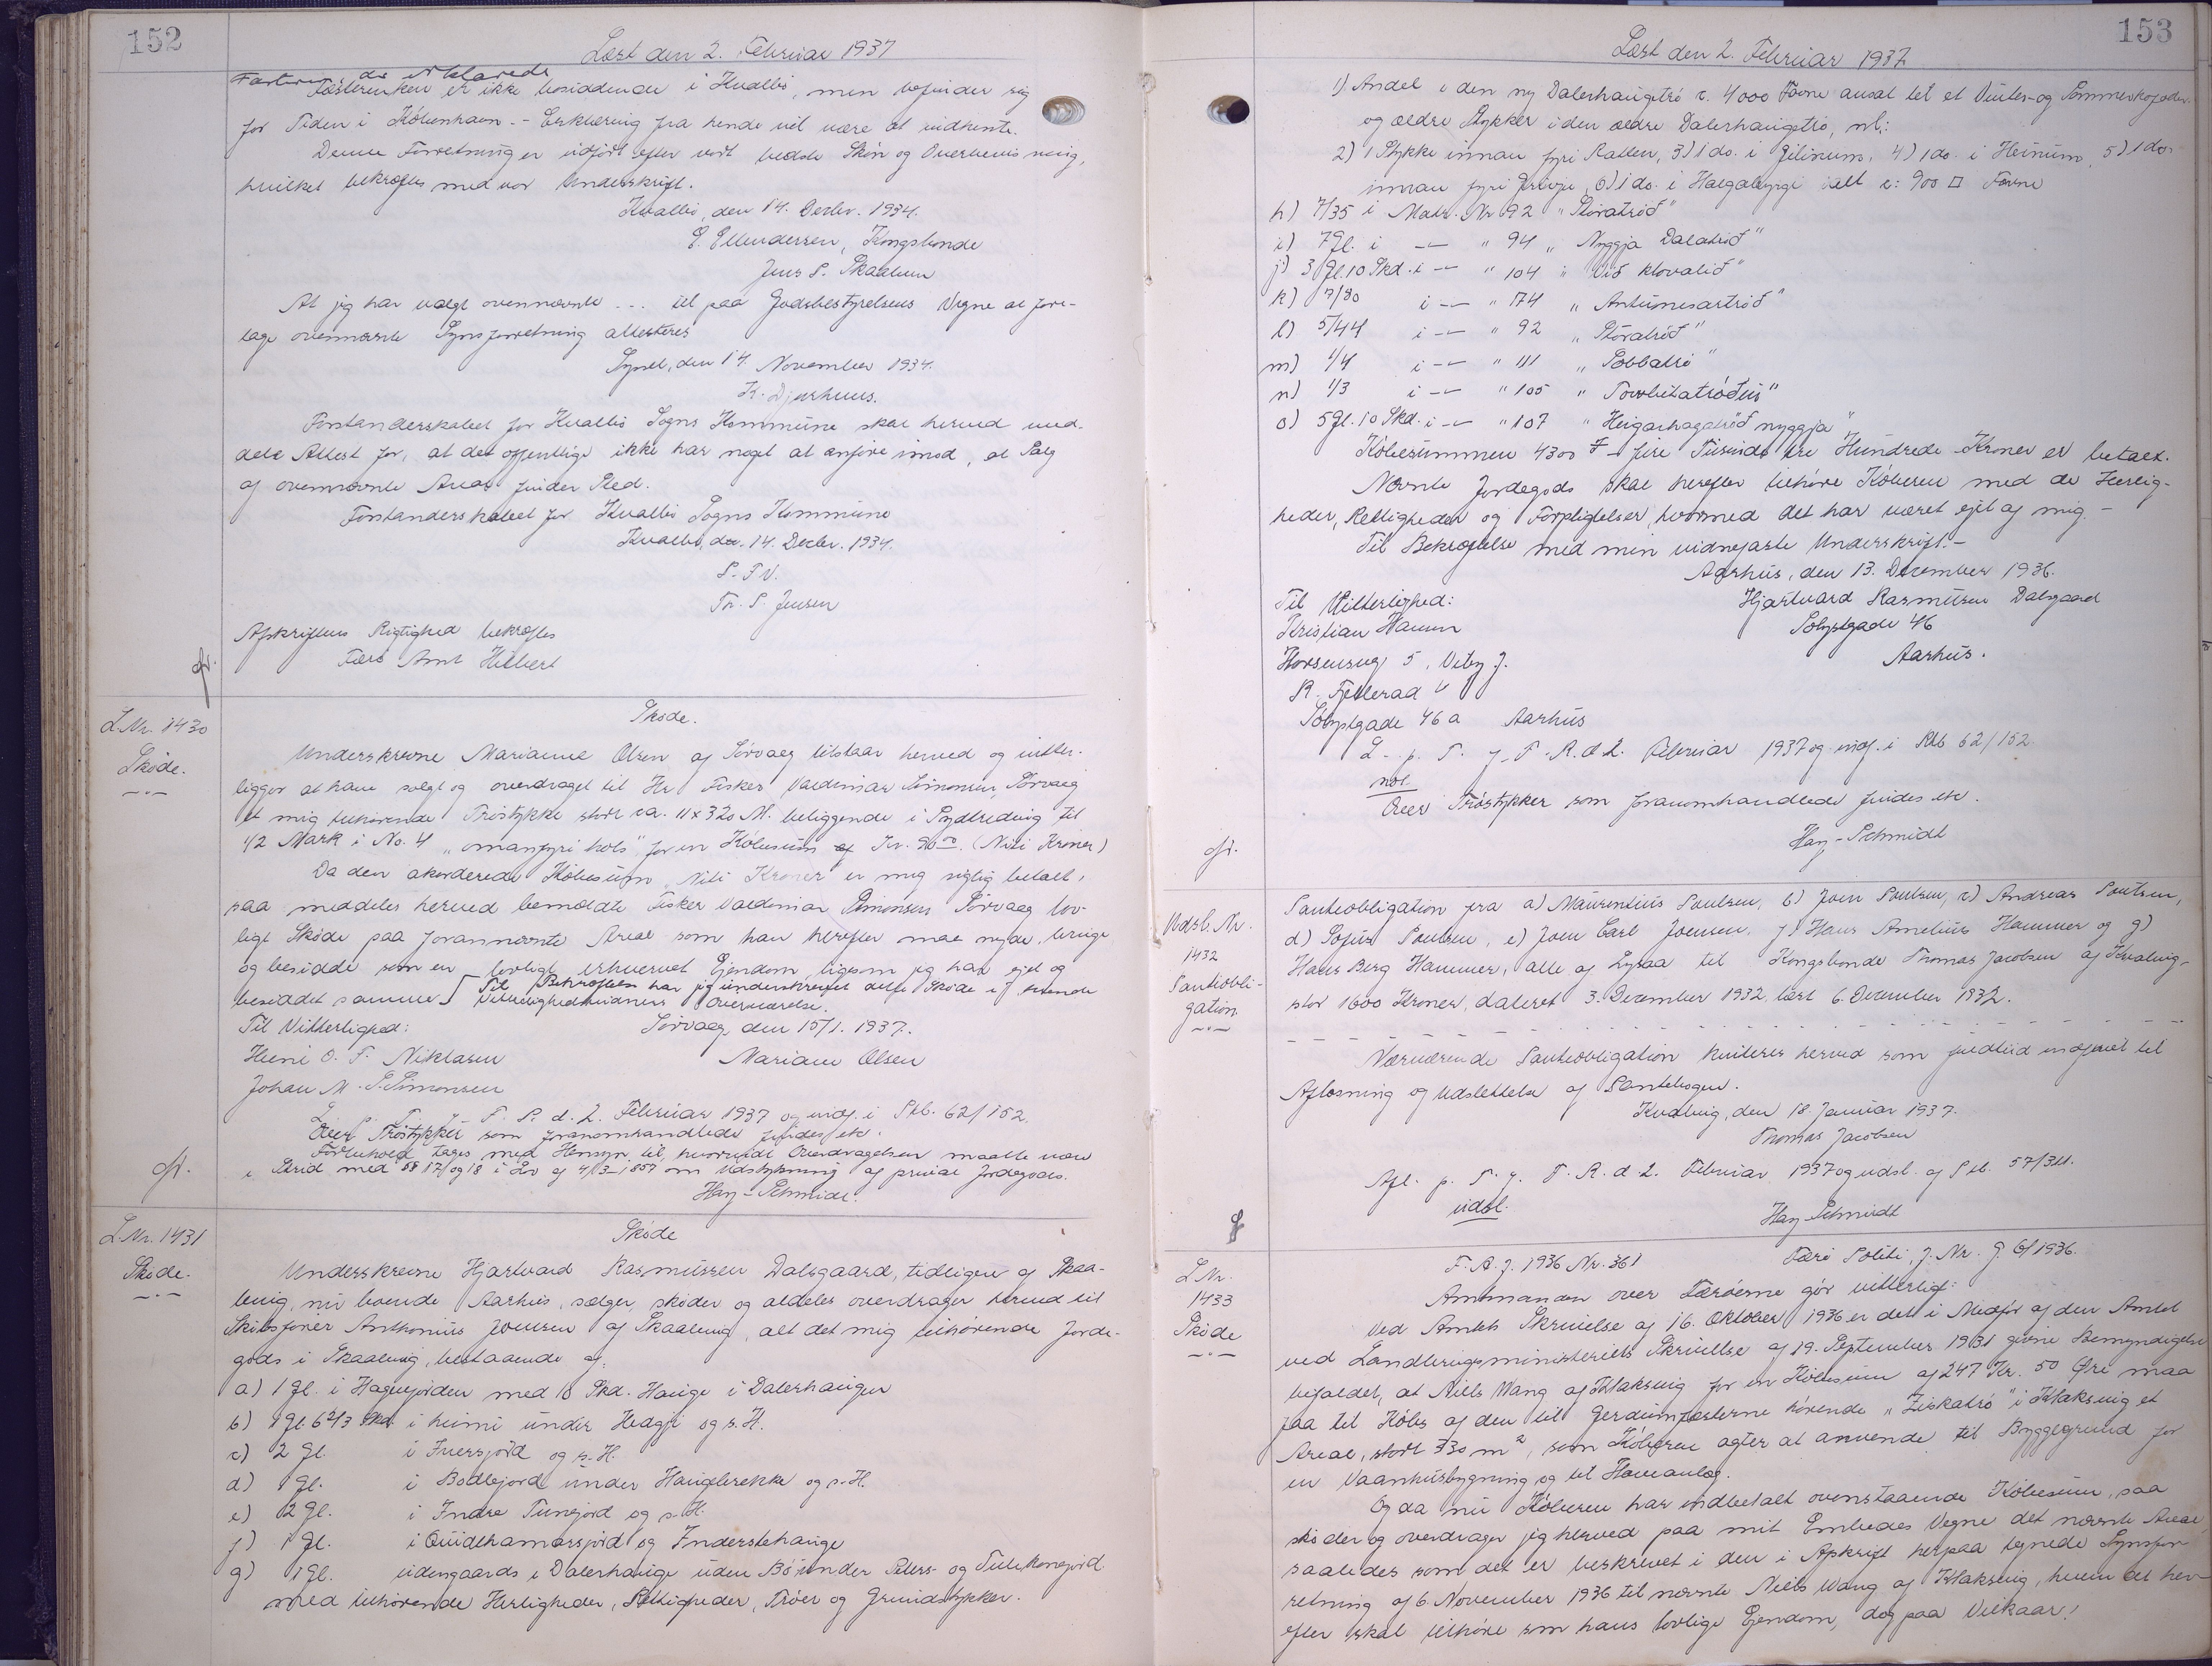 152
Læst den 2. Februar 1937
Fæsteren de erklærede
Fæsterenken er ikke hosiddende i Hvalbö, men befinder sig
for Tiden i Köbenhavn. - Erklæring fra hende vil være at indhente.
Denne Forretning er udfört efter vort bedste Skön og Overbevisning,
hvilket bekræftes med vor Underskrift.
Hvalbö, den 14. Decbr. 1934.
E. Ellendersen, Kongsbonde
Jens P. Skaalum
At jeg har valgt ovennævnte ... til paa Godsbestyrelsens Vegne at fore-
tage ovennævnte Synsforretning attesteres
Sysel, den 14 November 1934.
K. Djurhuus.
Forstanderskabet for Hvalbö Sogns Kommune skal herved med-
dele Attest for, at det offentlige ikke har noget at anföre imod, at Salg
af ovennævnte Areal finder Sted.
Forstanderskabet for Hvalbö Sogns Kommune
Hvalbö, den 14. Decbr. 1934.
P. F. V.
Tr. P. Jensen
Afskriftens Rigtighed bekræftes
Færö Amt Hilbert
L.Nr. 1430
Sköde.
Sköde.
Underskrevne Marianne Olsen af Sörvaag tilstaar herved og vitter-
ligger at have solgt og overdraget til Hr. Fisker Valdimar Simonsen, Sörvaag
et mig tilhörende Tröstykke stort ca. 11 x 320 M. beliggende i Sydtredning til
1/2 Mark i No. 4 "omanfyri hols" for en Köbesum af Kr. 90.00. (Niti Kroner)
Da den akorderede Köbesum Niti Kroner er mig rigtig betalt,
saa meddeles herved bemeldte Fisker Valdimar Simonsen Sörvaag lov-
ligt Sköde paa forannævnte Areal som han herefter maa nyde, bruge
og besidde som en lovligt erhvervet Ejendom, ligesom jeg har ejet og
besiddet samme. Til Bekræftelse har jeg underskrevet dette Sköde i tvende
Vitterlighedsvidners Overværelse.
Til Vitterlighed:
Sörvaag, den 15/1. 1937.
Heini O. F. Niklasen
Mariane Olsen
Johan M. S. Simonsen
L. p. T. f. F. R. d. 2. Februar 1937 og indf. i Rtb. 62/152.
Over Tröstykker som foranomhandlede findes ek.
Forbehold tages med Hensyn til, hvorvidt Overdragelsen maatte være
i Strid med §§ 17 og 18 i Lov af 4/3-1857 om Udstykning af privat Jordegods.
Hay-Schmidt.
L.Nr. 1431
Sköde.
Sköde
Underskrevne Hjartvard Rasmussen Dalsgaard, tidligere af Skaa-
levig, nu boende Aarhus, sælger, sköder og aldeles overdrager herved til
Skibsförer Anthonius Joensen af Skaalevig, alt det mig tilhörende Jorde-
gods i Skaalevig, bestaaende af:
a) 1 Gl. i Hagenjorden med 10 Skd. Hauge i Dalerhaugen
b) 1 Gl. 6 2/3 Skd. i heimi undir Hedgji og s. H.
c) 2 Gl. i Inversjord og s. H.
d) 1 Gl. i Bodlejord under Haugbrekke og s. H.
e) 2 Gl. i Indre Tunejord og s. H.
f) 1 Gl. i Quidehamarsjord og Inderstehauge
g) 1 Gl. udengaards i Dalerhauge uden Bö under Peters- og Tulekonejord
med tilhörende Herligheder, Rettigheder, Tröer og Grundstykker.
153
Læst den 2. Februar 1937
1) Andel i den ny Dalerhaugetrö c. 4000 Favne ansat til et Vinter- og Sommerkofoder
og ældre Stykker i den ældre Dalerhaugetrö, nl.:
2) 1 Stykke innan fyri Rallen, 3) 1 do. i Gilinum, 4) 1 do. i Heinum, 5) 1 do.
innan fyri Grivju, 6) 1 do. i Halgabyrgi ialt c: 900 □ Favne
h) 7/35 i Matr. Nr 92 "Stóratröð"
i) 7 Gl. i — " 94 " Nyggja Dalatröð"
j) 3 Gl. 10 Skd. i — " 104 " Við klovalið"
k) 7/80 i — " 174 " Antunesartröð"
l) 5/44 i — " 92 " Stóratröð"
m) 1/4 i — " 111 " Pobbatrö"
n) 1/3 i — " 105 " Torvbitatröðin"
o) 5 Gl. 10 Skd. i — " 107 " Heigarhagatröð nyggja"
Köbesummen 4300 Kr - fire Tusinde tre Hundrede Kroner er betalt.
Nævnte Jordegods skal herefter tilhöre Köberen med de Herlig-
heder, Rettigheder og Forpligtelser, hvormed det har været ejet af mig. -
Til Bekræftelse med min vidnefaste Underskrift. -
Aarhus, den 13. December 1936.
Til Vitterlighed:
Hjartvard Rasmussen Dalsgaard
Kristian Hamm
Sölystgade 46
Horsensvej 5, Viby J.
Aarhus.
R. Fjellerad
Sölystgade 46 a Aarhus
L. p. T. f. F. R. d. 2. Februar 1937 og indf. i Rtb 62/152
not.
Over Tröstykker som foranomhandlede findes ek.
Hay-Schmidt
Udsl. Nr.
1432
Panteobli-
gation.
Panteobligation fra a) Maurentius Poulsen, b) Joen Poulsen, c) Andreas Poulsen,
d) Sofus Poulsen, e) Joen Carl Joensen, f) Hans Amelius Hammer og g)
Hans Berg Hammer, alle af Lopra til Kongsbonde Thomas Jacobsen af Kvalvig
stor 1600 Kroner, dateret 3. December 1932, læst 6. December 1932.
Nærværende Panteobligation kvitteres herved som fuldtud indfriet til
Aflösning og Udslettelse af Pantebogen.
Kvalvig, den 18. Januar 1937.
Thomas Jacobsen
Afl. p. T. f. F. R. d. 2. Februar 1937 og udsl. af Ptb. 57/311.
udsl.
Hay-Schmidt
L.Nr.
1433
Sköde
F. A. J. 1936 Nr. 361
Færö Politi, J. Nr. G. 6/1936.
Amtmanden over Færöerne gör vitterligt:
Ved Amtets Skrivelse af 16. Oktober 1936 er det i Medför af den Amtet
ved Landbrugsministeriets Skrivelse af 19. September 1931 givne Bemyndigelse
befalet, at Niels Wang af Klaksvig for en Köbesum af 247 Kr. 50 Øre maa
faa til Köbs af den til Gerdumfæsterne hörende "Ziskatrö" i Klaksvig et
Areal, stort 330 m², som Köberen agter at anvende til Byggegrund for
en Vaanhusbygning og til Haveanlæg.
Og da nu Köberen har indbetalt ovenstaaende Köbesum, saa
sköder og overdrager jeg herved paa mit Embedes Vegne det nævnte Areal
saaledes som det er beskrevet i den i Afskrift herpaa tegnede Synsfor-
retning af 6. November 1936 til nævnte Niels Wang af Klaksvig, hvem det her-
efter skal tilhöre som hans lovlige Ejendom, dog paa Vilkaar: